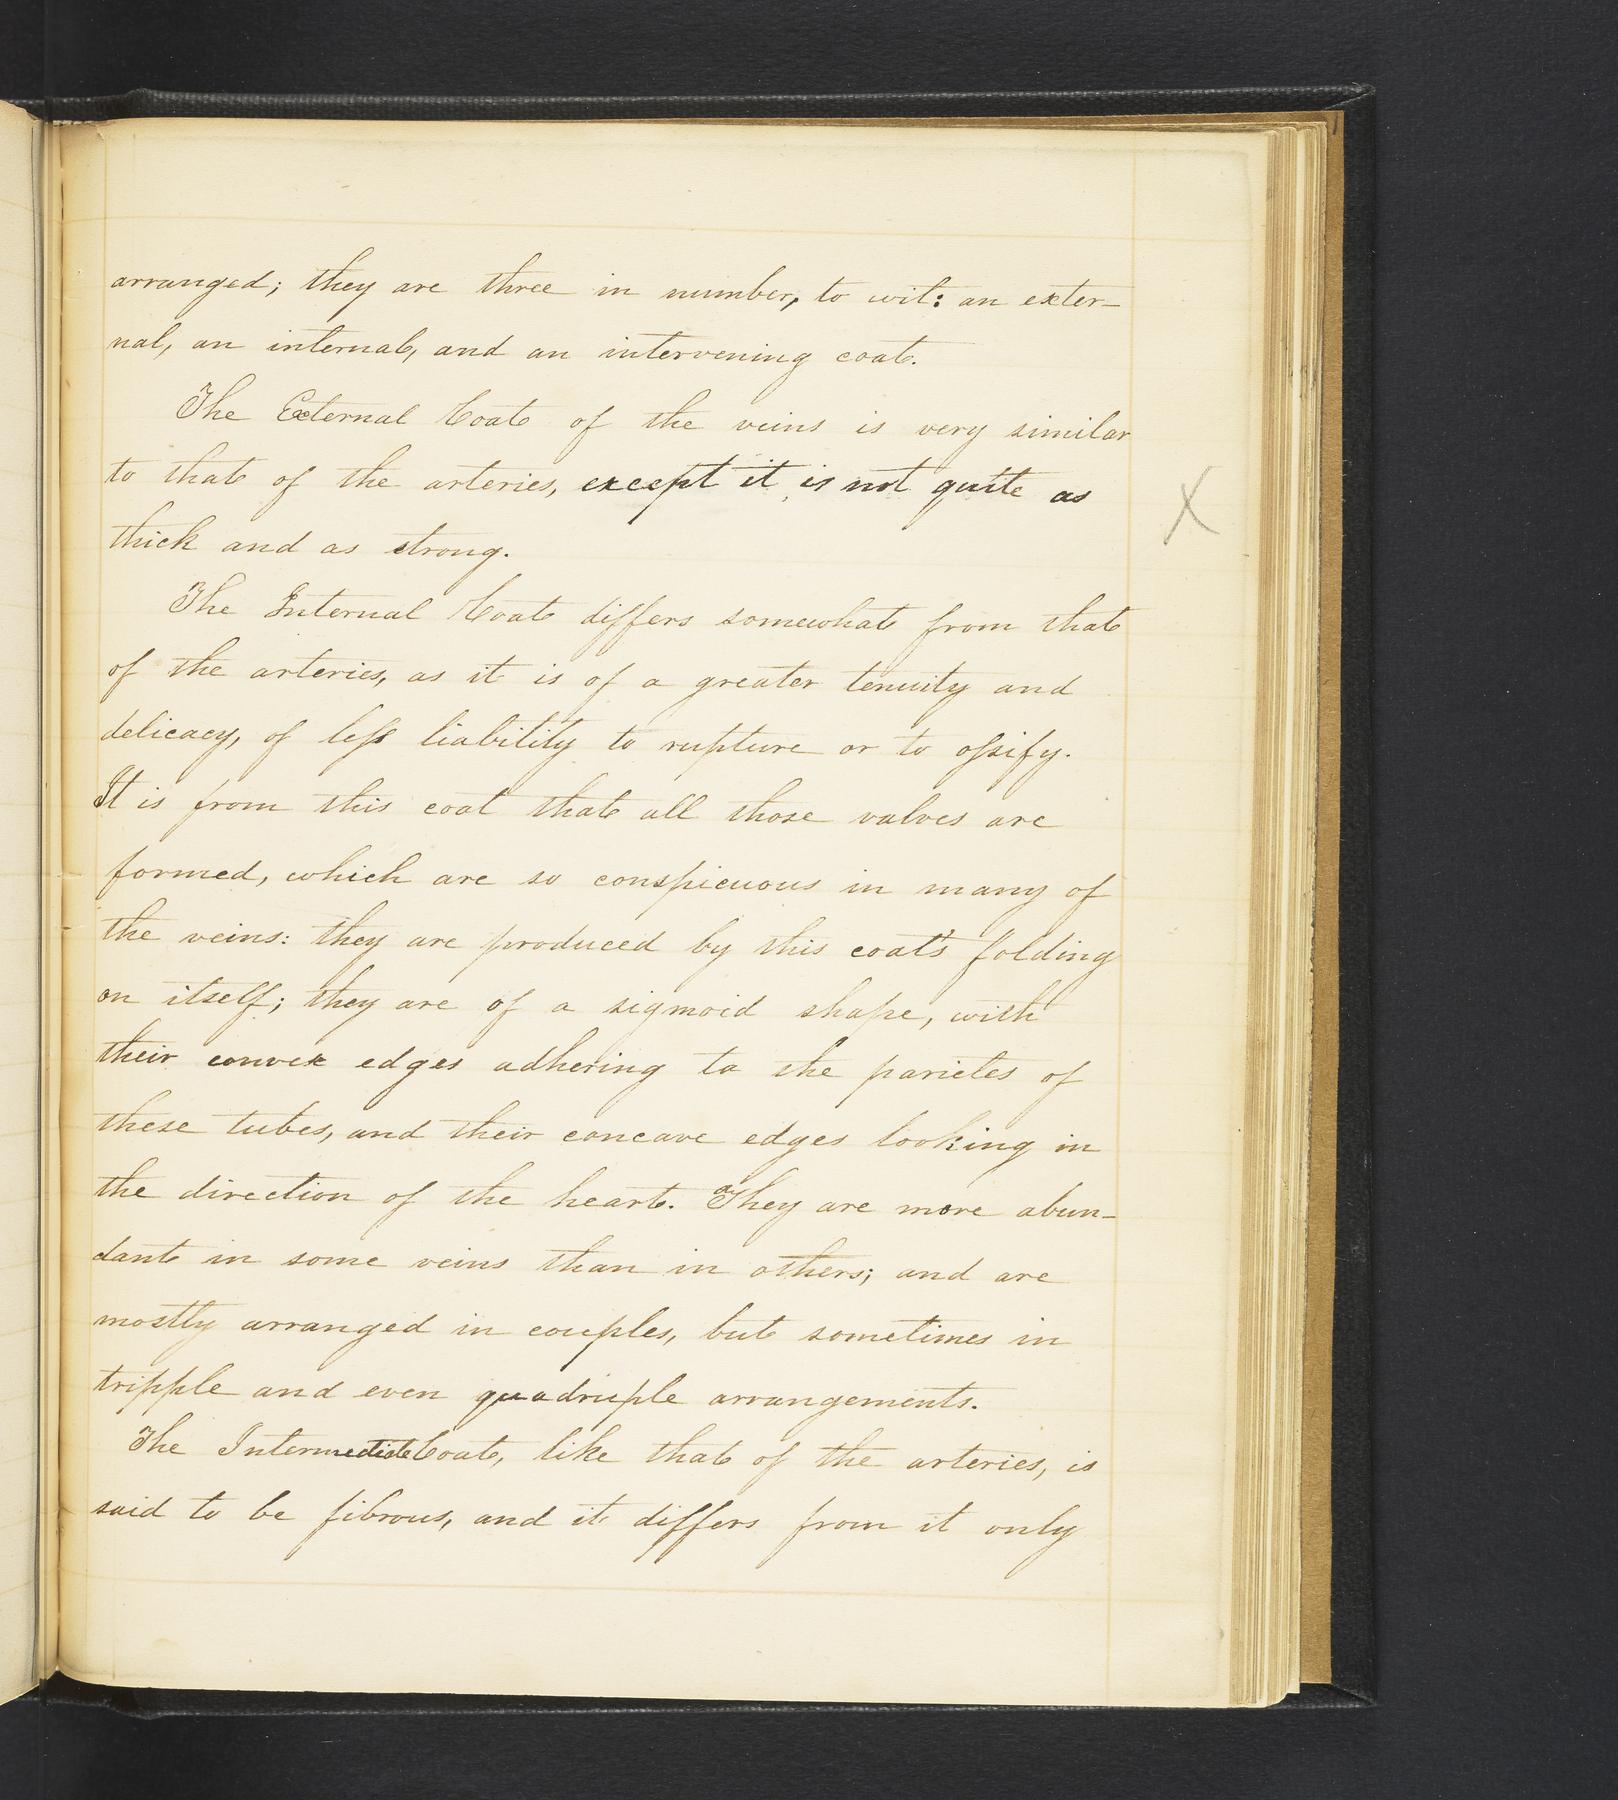 arranged; they are three in number, to wit: an exter-
nal, an internal, and an intervening coat.
The External Coat of the veins is very similar
to that of the arteries, except it is not quite as
X
thick and as strong.
The Internal Coat differs somewhat from that
of the arteries, as it is of a greater tenuity and
delicacy, of less liability to rupture or to ossify.
It is from this coat that all those valves are
formed, which are so conspicuous in many of
the veins: they are produced by this coat's folding
on itself; they are of a sigmoid shape, with
their convex edges adhering to the parietes of
these tubes, and their concave edges looking in
the direction of the heart. They are more abun-
dant in some veins than in others; and are
mostly arranged in couples, but sometimes in
tripple and even quadruple arrangements.
The Intermediate Coat, like that of the arteries, is
said to be fibrous, and it differs from it only